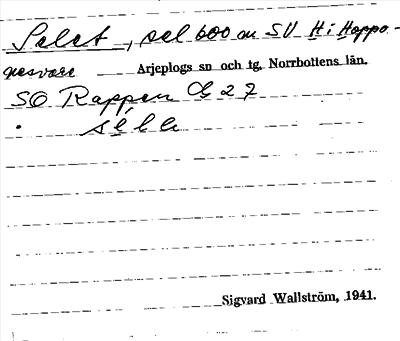 Selet, sel 600 m SV H i Hoppo-
nesvare Arjeplogs sn och tg, Norrbottens län.
SO Rappen G 27
• sèlle
Sigvard Wallström, 1941.